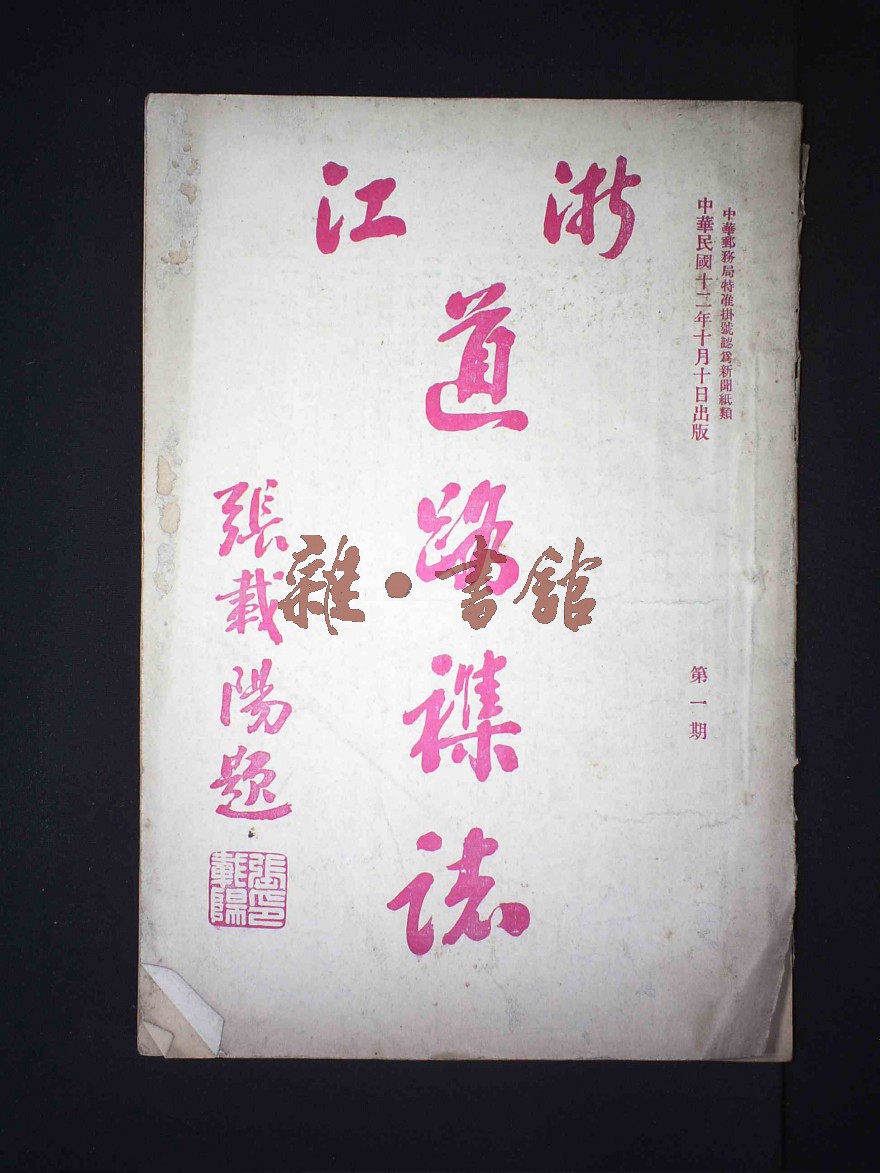 中華郵務局特准掛號認爲新聞紙類
中華民國十二年十月十日出版
第一期
浙江
道路襍誌
張載陽題
張載陽印
雜·書館